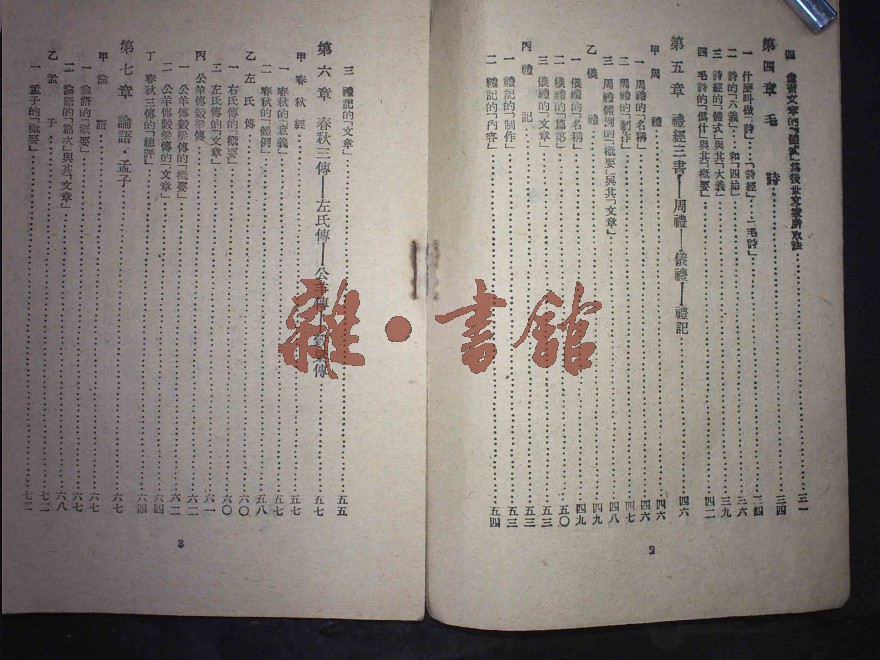 四 尚書文章的「體式」爲後世文家所取法……三一
第四章 毛 詩……三四
一 什麼叫做「詩」…「詩經」…「毛詩」……三四
二 詩的「六義」…和「四始」……三六
三 詩經的「體式」與其「大義」……三九
四 毛詩的「篇什」與其「概要」……四二
第五章 禮經三書——周禮——儀禮——禮記……四六
甲 周 禮……四六
一 周禮的「名稱」……四六
二 周禮的「制作」……四七
三 周禮體例的「概要」與其「文章」……四八
乙 儀 禮……四九
一 儀禮的「名稱」……四九
二 儀禮的「篇第」……五〇
三 儀禮的「文章」……五三
丙 禮 記……五三
一 禮記的「制作」……五三
二 禮記的「內容」……五四
2
三 禮記的「文章」……五五
第六章 春秋三傳——左氏傳——公羊傳——穀梁傳……五七
甲 春 秋 經……五七
一 春秋的「意義」……五七
二 春秋的「體例」……五八
乙 左 氏 傳……六〇
一 右氏傳的「概要」……六〇
二 左氏傳的「文章」……六一
丙 公羊傳穀梁傳……六二
一 公羊傳穀梁傳的「概要」……六二
二 公羊傳穀梁傳的「文章」……六二
丁 春秋三傳的「總評」……六四
第七章 論語・孟子……六七
甲 論 語……六七
一 論語的「概要」……六七
二 論語的「篇次」與其「文章」……六八
乙 孟 子……七二
一 孟子的「概要」……七二
3
雜・書館